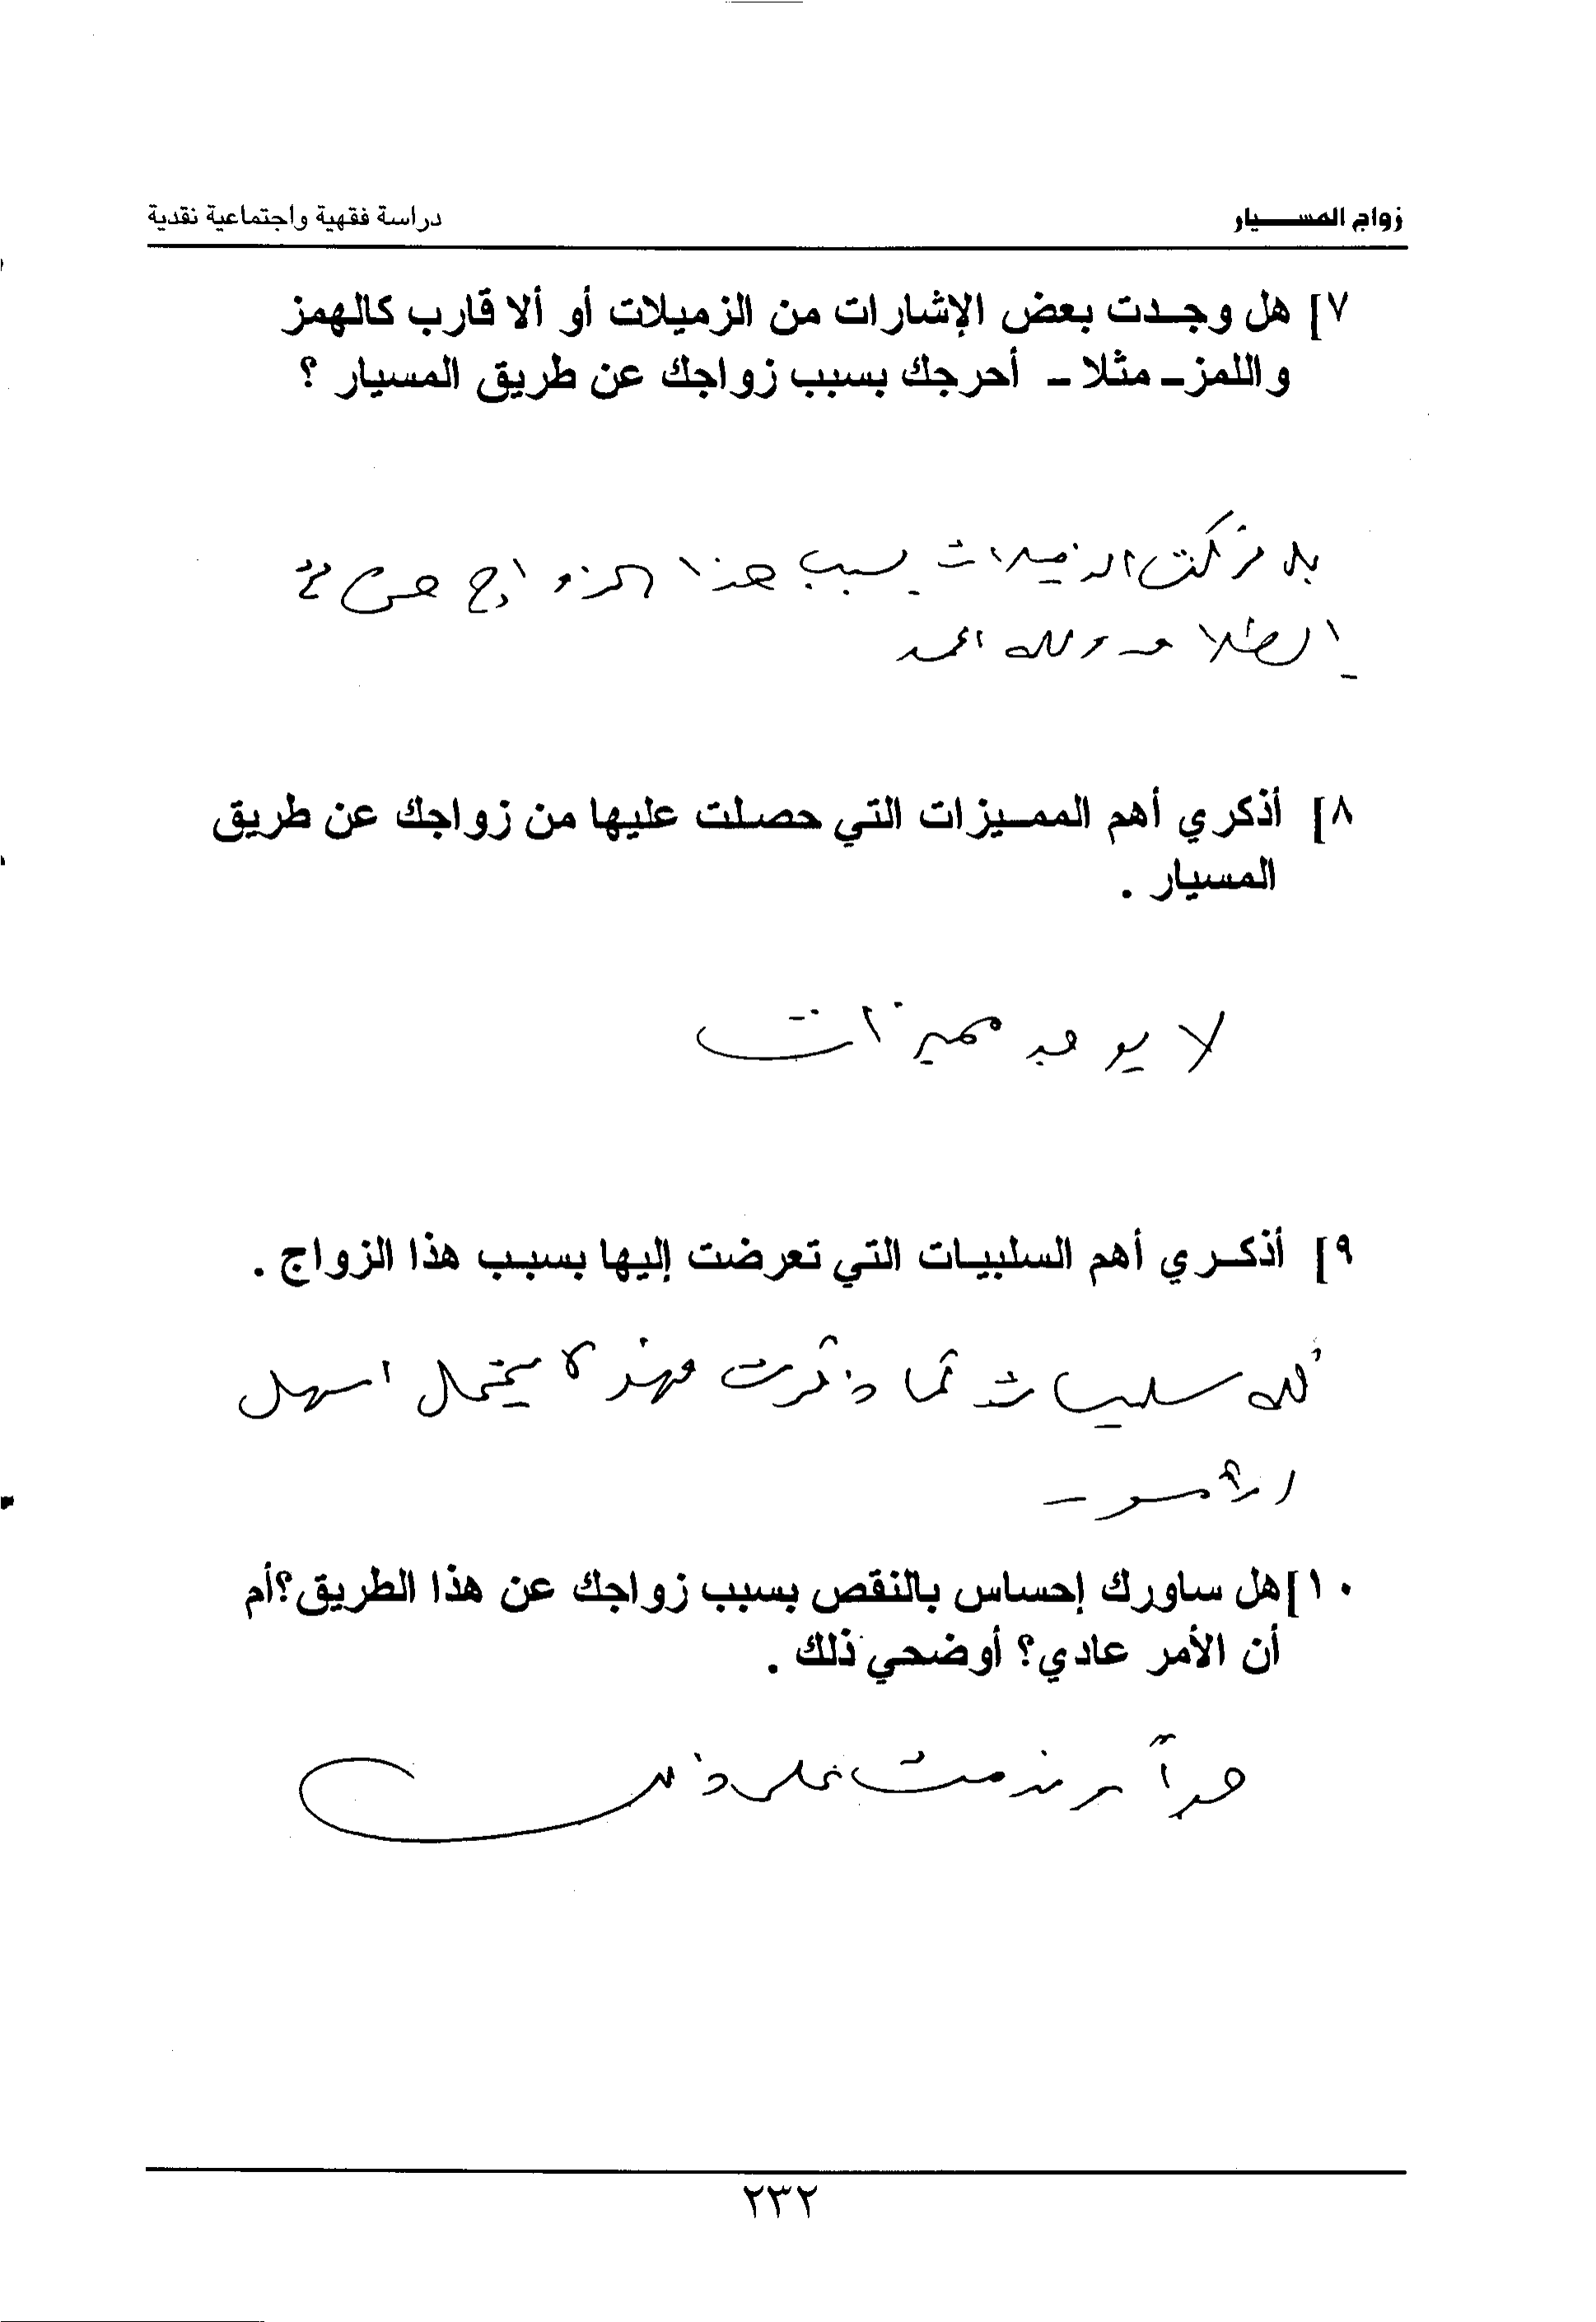 زواج المسيار
دراسة فقهية واجتماعية نقدية
٧] هل وجدت بعض الإشارات من الزميلات أو ألا قارب كالهمز
واللمز- مثلا - أحرجك بسبب زواجك عن طريق المسيار ؟
بل تركت الزميلات بسبب هذا الزواج حتى تم
الطلاق ولله الحمد
٨] أذكري أهم المميزات التي حصلت عليها من زواجك عن طريق
المسيار .
لا يوجد مميزات
٩] أذكري أهم السلبيات التي تعرضت إليها بسبب هذا الزواج .
كله سلبيات كما ذكرت فهذا لا يتحمل اسهل
الأمور
١٠] هل ساورك إحساس بالنقص بسبب زواجك عن هذا الطريق؟أم
أن الأمر عادي؟ أوضحي ذلك .
جداً وندمت على ذلك
٢٣٢